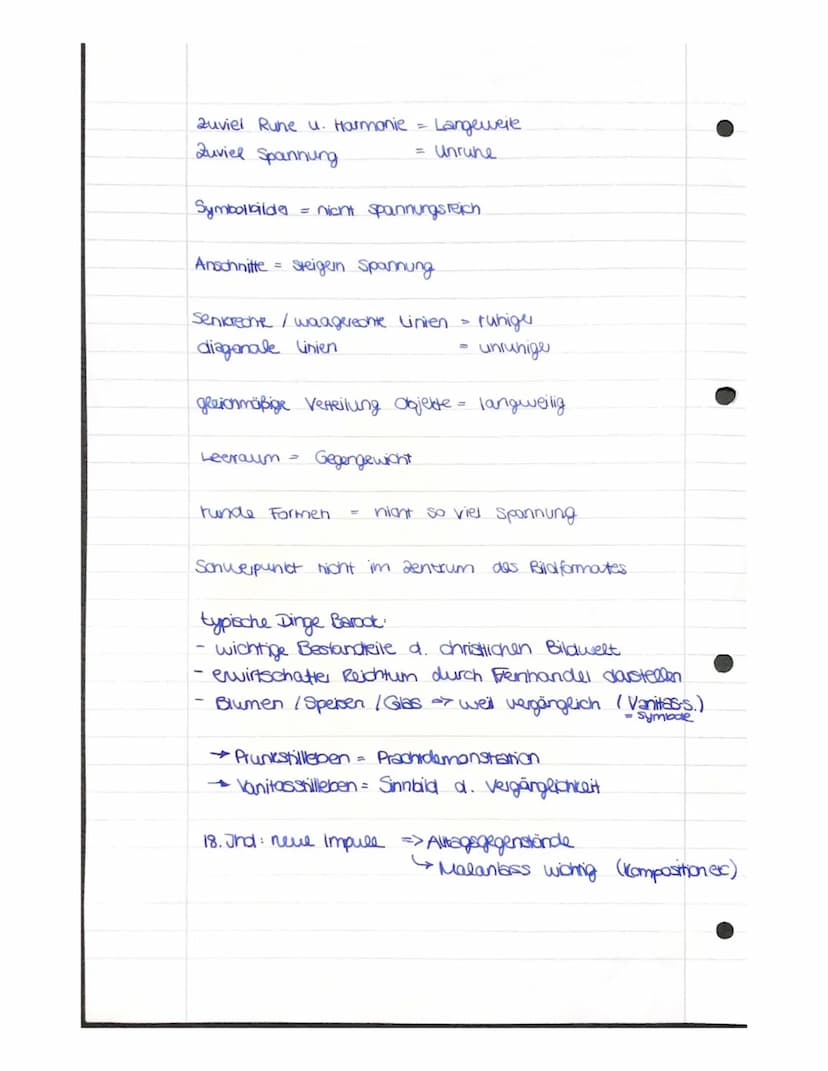 Zuviel Ruhe u. Harmonie = Langeweile
Zuviel Spannung = Unruhe
Symbolbilder = nicht spannungsreich
Anschnitte = steigern Spannung
Senkrechte / waagerechte Linien = ruhiger
diagonale Linien = unruhiger
gleichmäßige Verteilung Objekte = langweilig
Leerraum = Gegengewicht
runde Formen = nicht so viel Spannung
Schwerpunkt nicht im Zentrum des Bildformates
typische Dinge Barock:
- wichtige Bestandteile d. christlichen Bildwelt
- erwirtschafteter Reichtum durch Fernhandel darstellen
- Blumen / Speisen / Glas => weil vergänglich (Vanitass.)
= Symbole
→ Prunkstillleben = Prachtdemonstration
→ Vanitasstillleben = Sinnbild d. Vergänglichkeit
18. Jhd: neue Impulse => Alltagsgegenstände
↳ Malanlass wichtig (Komposition etc)